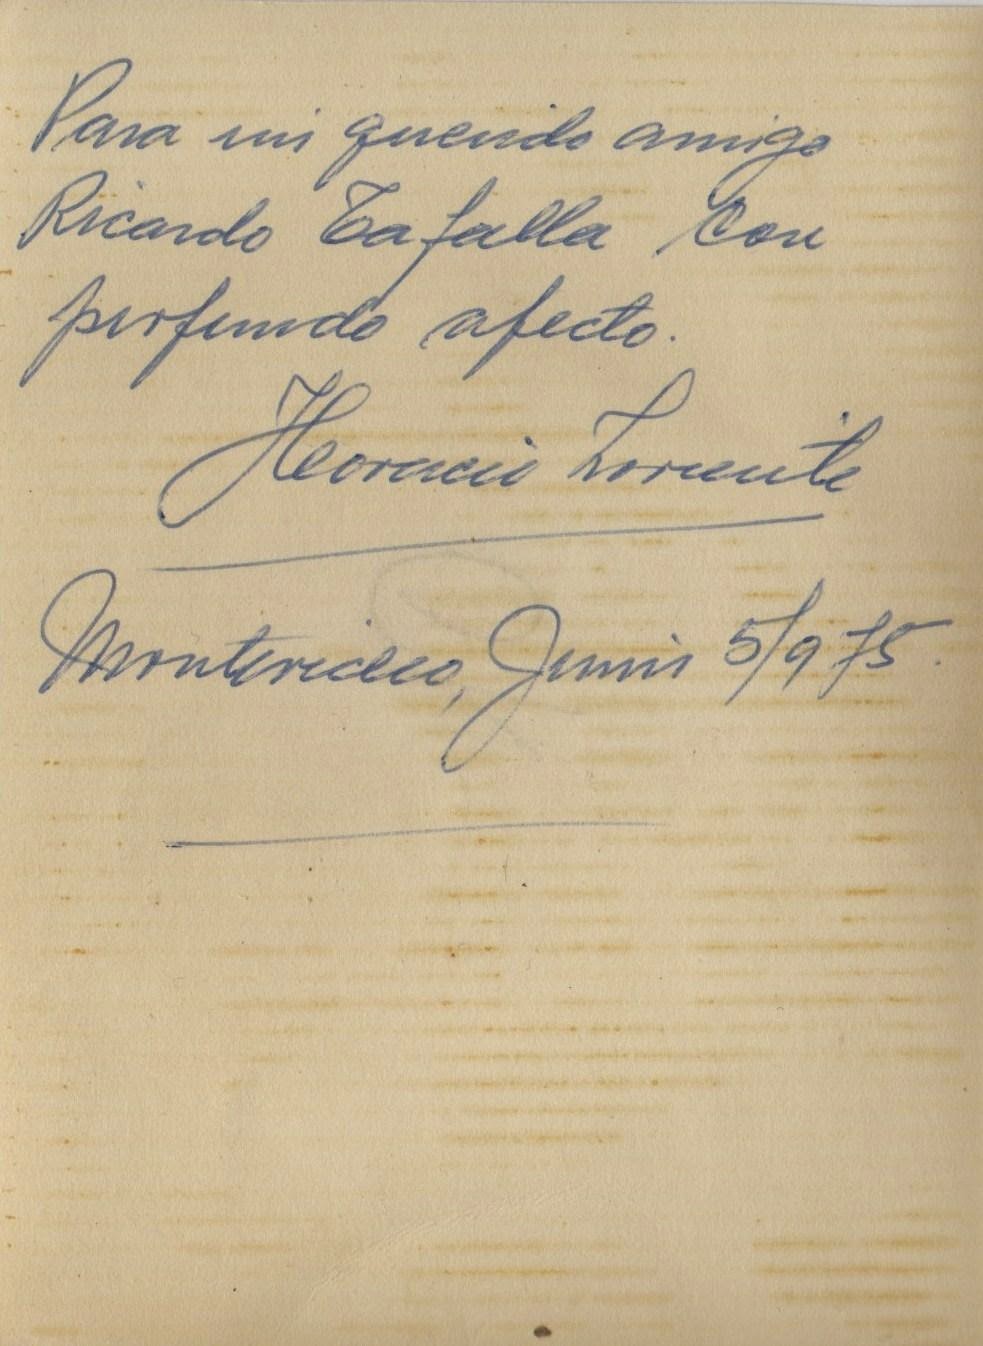 Para mi querido amigo
Ricardo Tafalla con
profundo afecto.
Horacio Lorente
Montevideo, Junio 5/975.